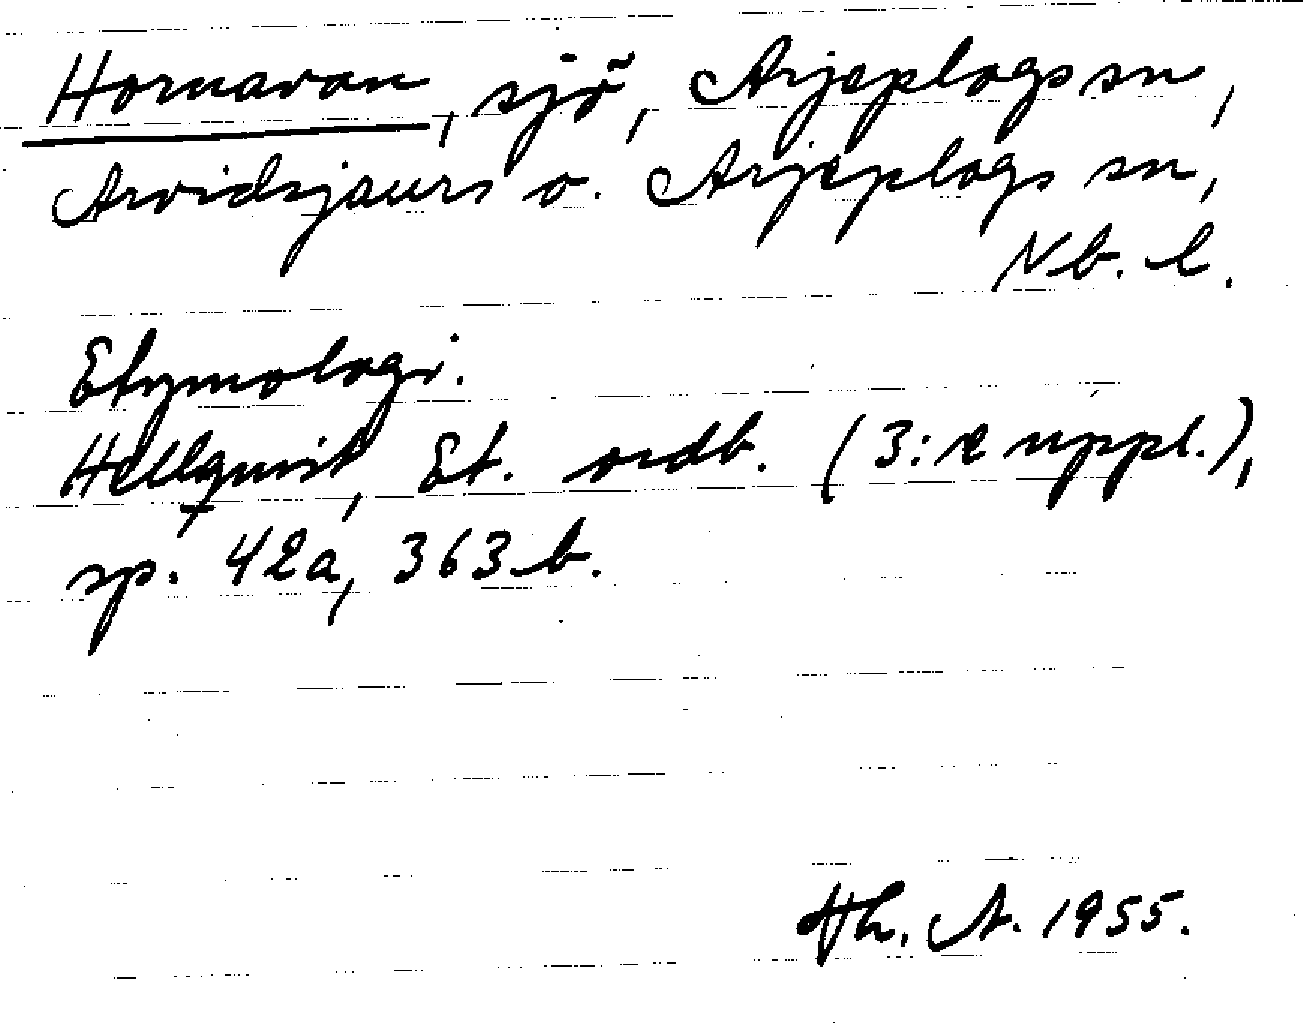 Hornavan, sjö, Arjeplogs sn,
Arvidsjaurs o. Arjeplogs sn,
Nb. l.
Etymologi.
Hellquist, Et. ordb. (3:e uppl.),
sp. 42a, 363 b.
Hh. A. 1955.